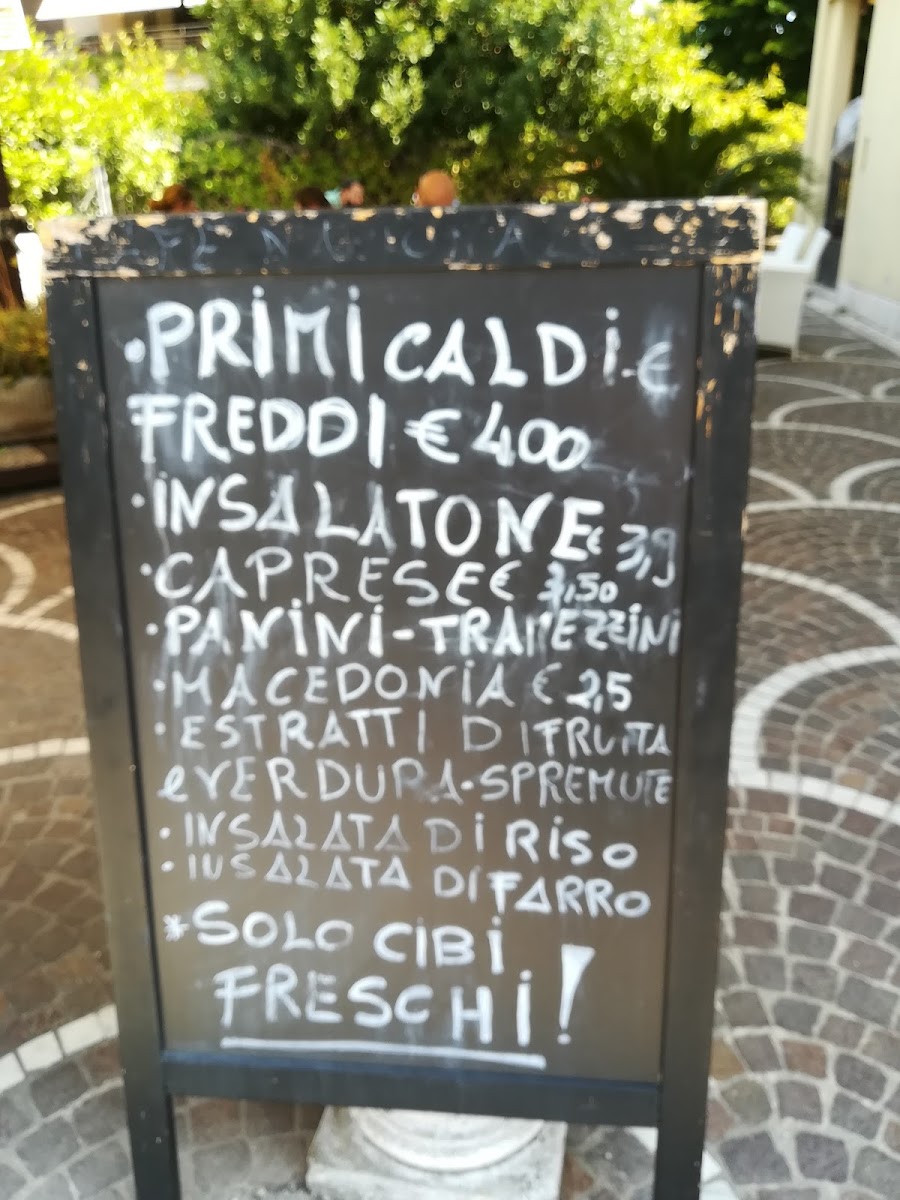 • PRIMI CALDI - €
FREDDI € 4,00
• INSALATONE € 3,9
• CAPRESE € 3,50
• PANINI - TRAMEZZINI
• MACEDONIA € 2,5
• ESTRATTI DI FRUTTA
e VERDURA • SPREMUTE
• INSALATA DI RISO
• INSALATA DI FARRO
* SOLO CIBI
FRESCHI!